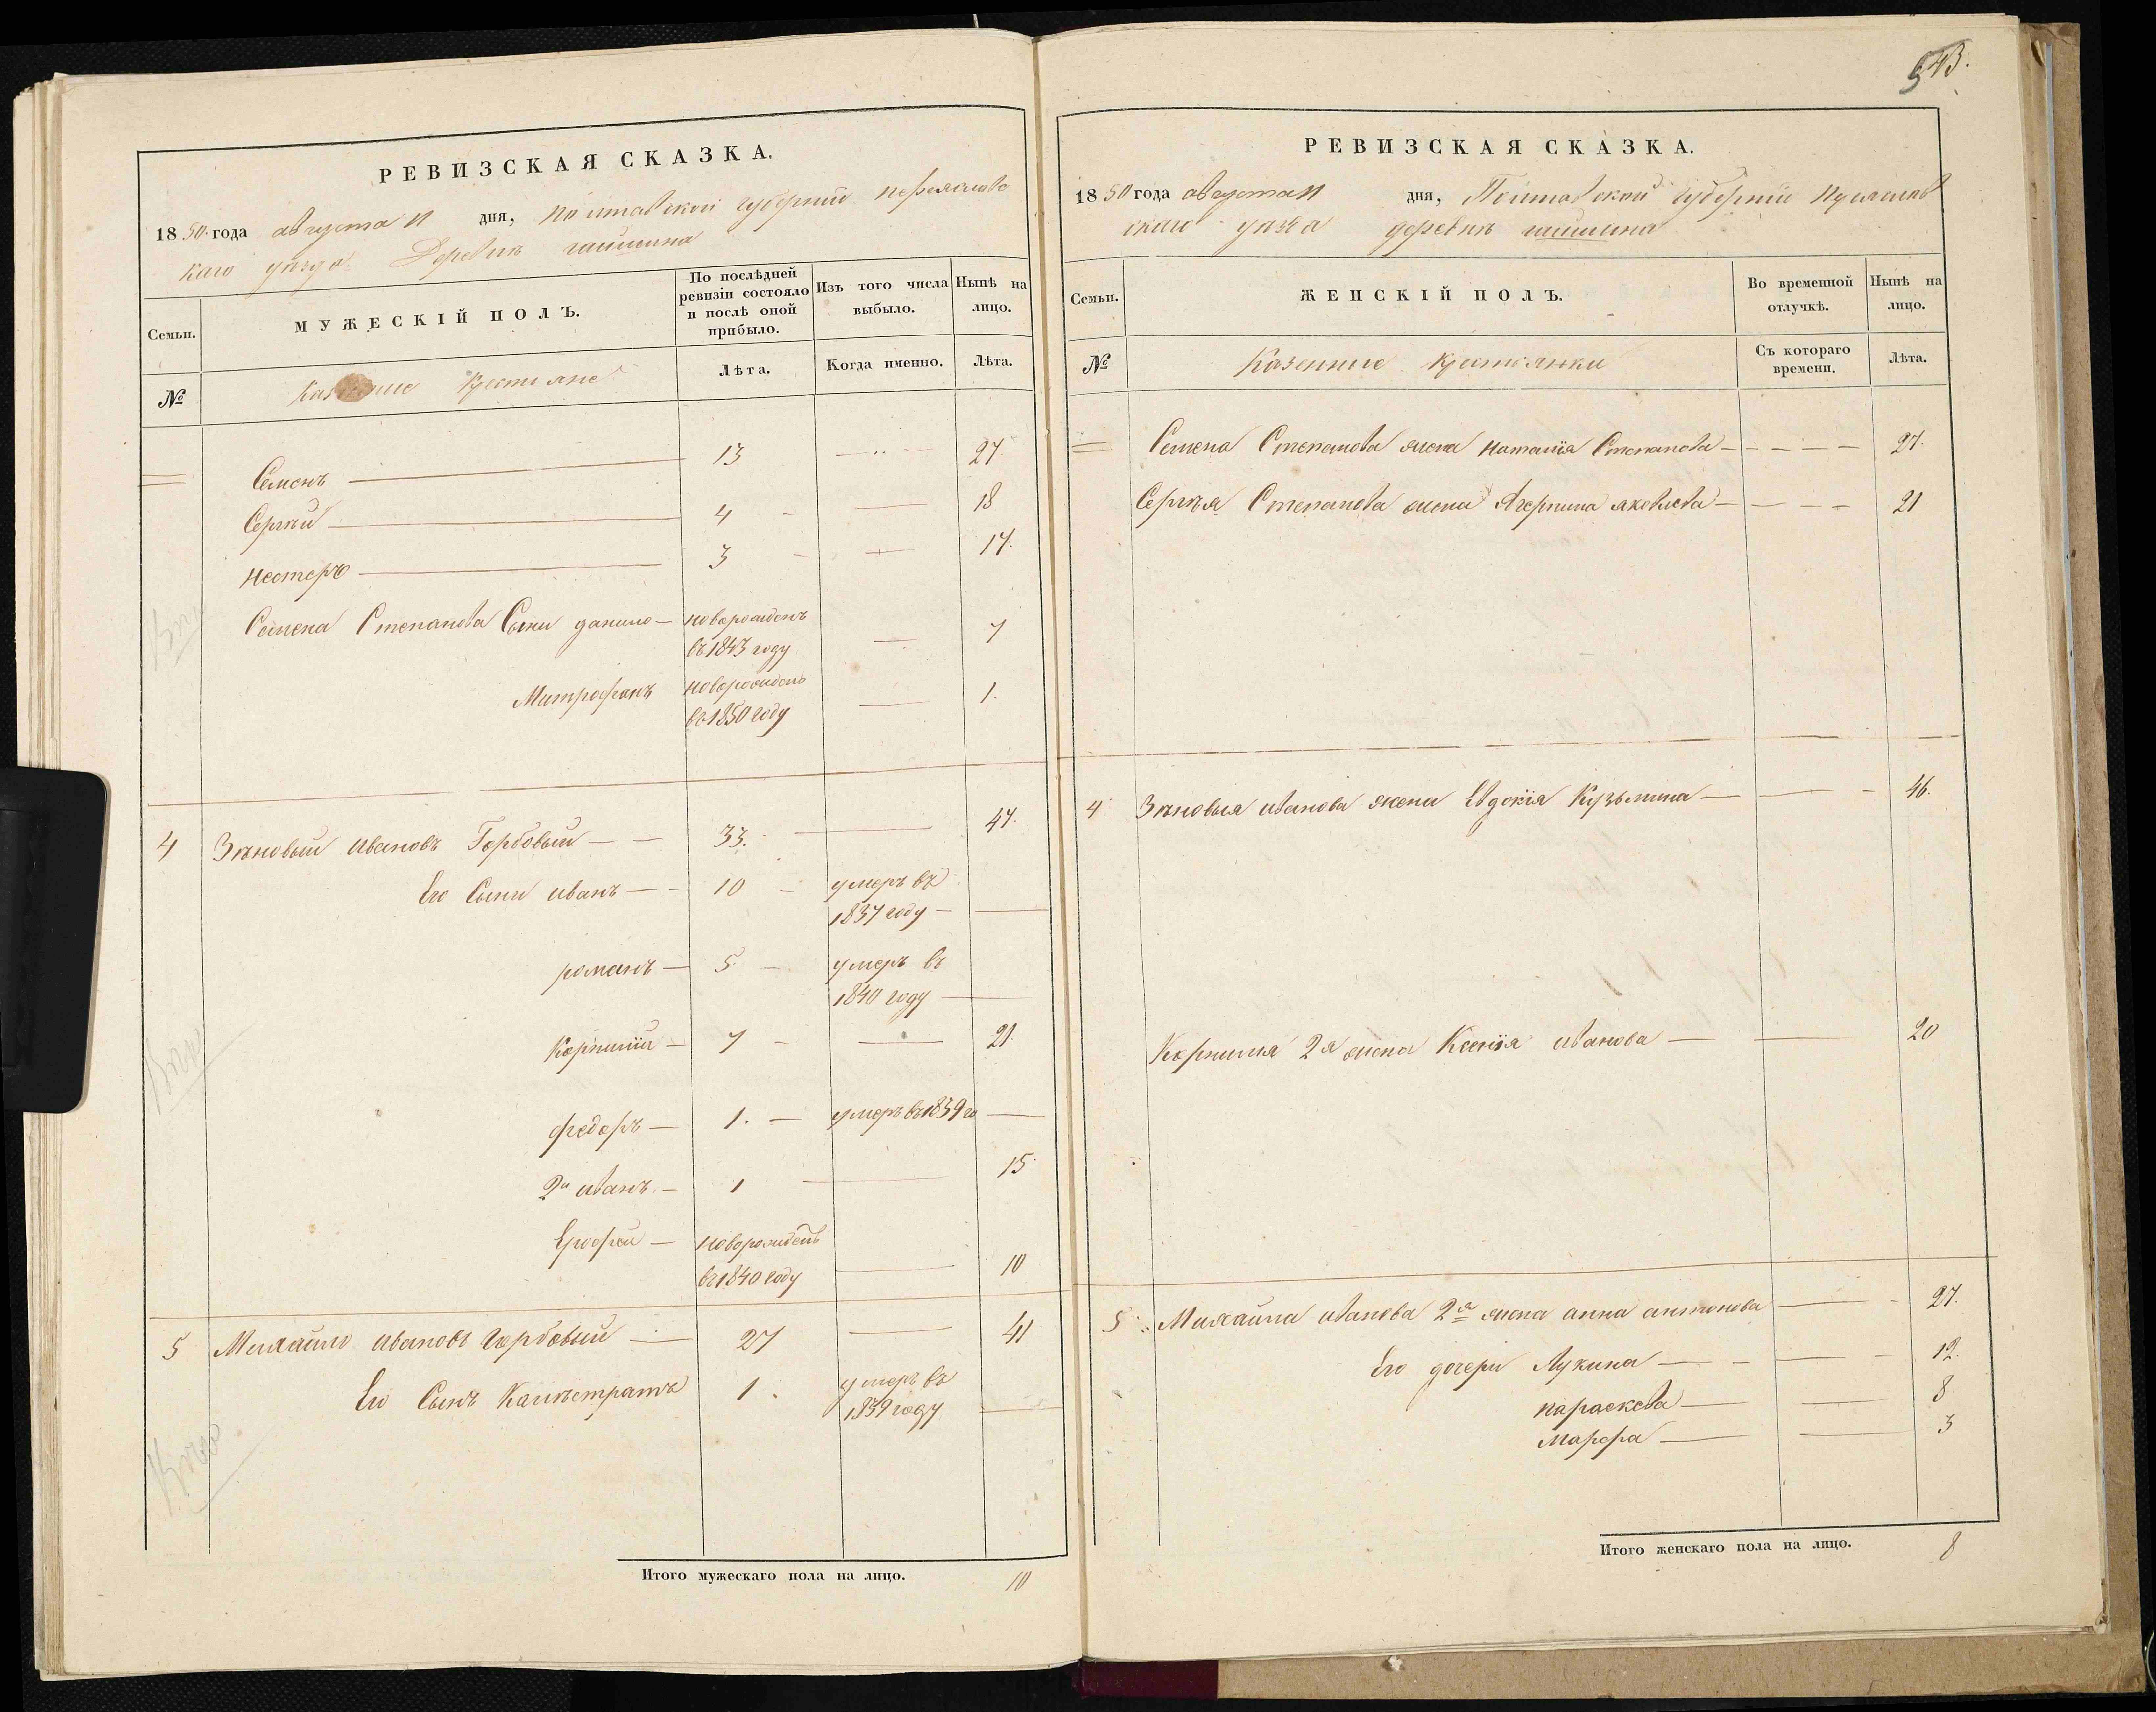 543.
РЕВИЗСКАЯ СКАЗКА.
1850 года августа 11 дня, Полтавской губернии переяславс
каго уезда Деревни гайшина
Семьи.
МУЖЕСКІЙ ПОЛЪ.
По послѣдней ревизіи состояло и послѣ оной прибыло.
Изъ того числа выбыло.
Нынѣ на лицо.
№
Казенные крестьяне
Лѣта.
Когда именно.
Лѣта.
Семенъ 13 27
Сергѣй 4 18
Нестеръ 3 17.
Семена Степанова Сыни данило новорожденъ
въ 1843 году 7
Митрофанъ новорожденъ
въ 1850 году 1.
4 Зѣновый ивановъ Горбовый 33. 47.
Его Сыни иванъ 10 умеръ въ
1837 году
романъ 5 умеръ въ
1840 году
Корнилій 7 21.
федоръ 1. умеръ въ 1839 го
2й иванъ 1 15
Ерофей новорожденъ
въ 1840 году 10
5 Михайло ивановъ горбовый 27 41
Его Сынъ Калѣстратъ 1. умеръ въ
1839 году
Итого мужескаго пола на лицо. 10
РЕВИЗСКАЯ СКАЗКА.
1850 года августа 11 дня, Полтавской губерніи
скаго уезда деревни гайшина
Семьи.
ЖЕНСКІЙ ПОЛЪ.
Во временной отлучкѣ.
Нынѣ на лицо.
№
Казенные крестьянки
Съ котораго времени.
Лѣта.
Семена Степанова жена наталія Степанова 27.
Сергѣя Степанова жена Агерпина яковлева 21
4 Зѣновыя иванова жена Евдокія Кузьмина 46.
Корнилія 2я жена Ксенія иванова 20
5 Михайла иванова 2я жена анна антонова 27.
Его дочери Лукина 12.
параскева 8
марфа 3
Итого женскаго пола на лицо. 8